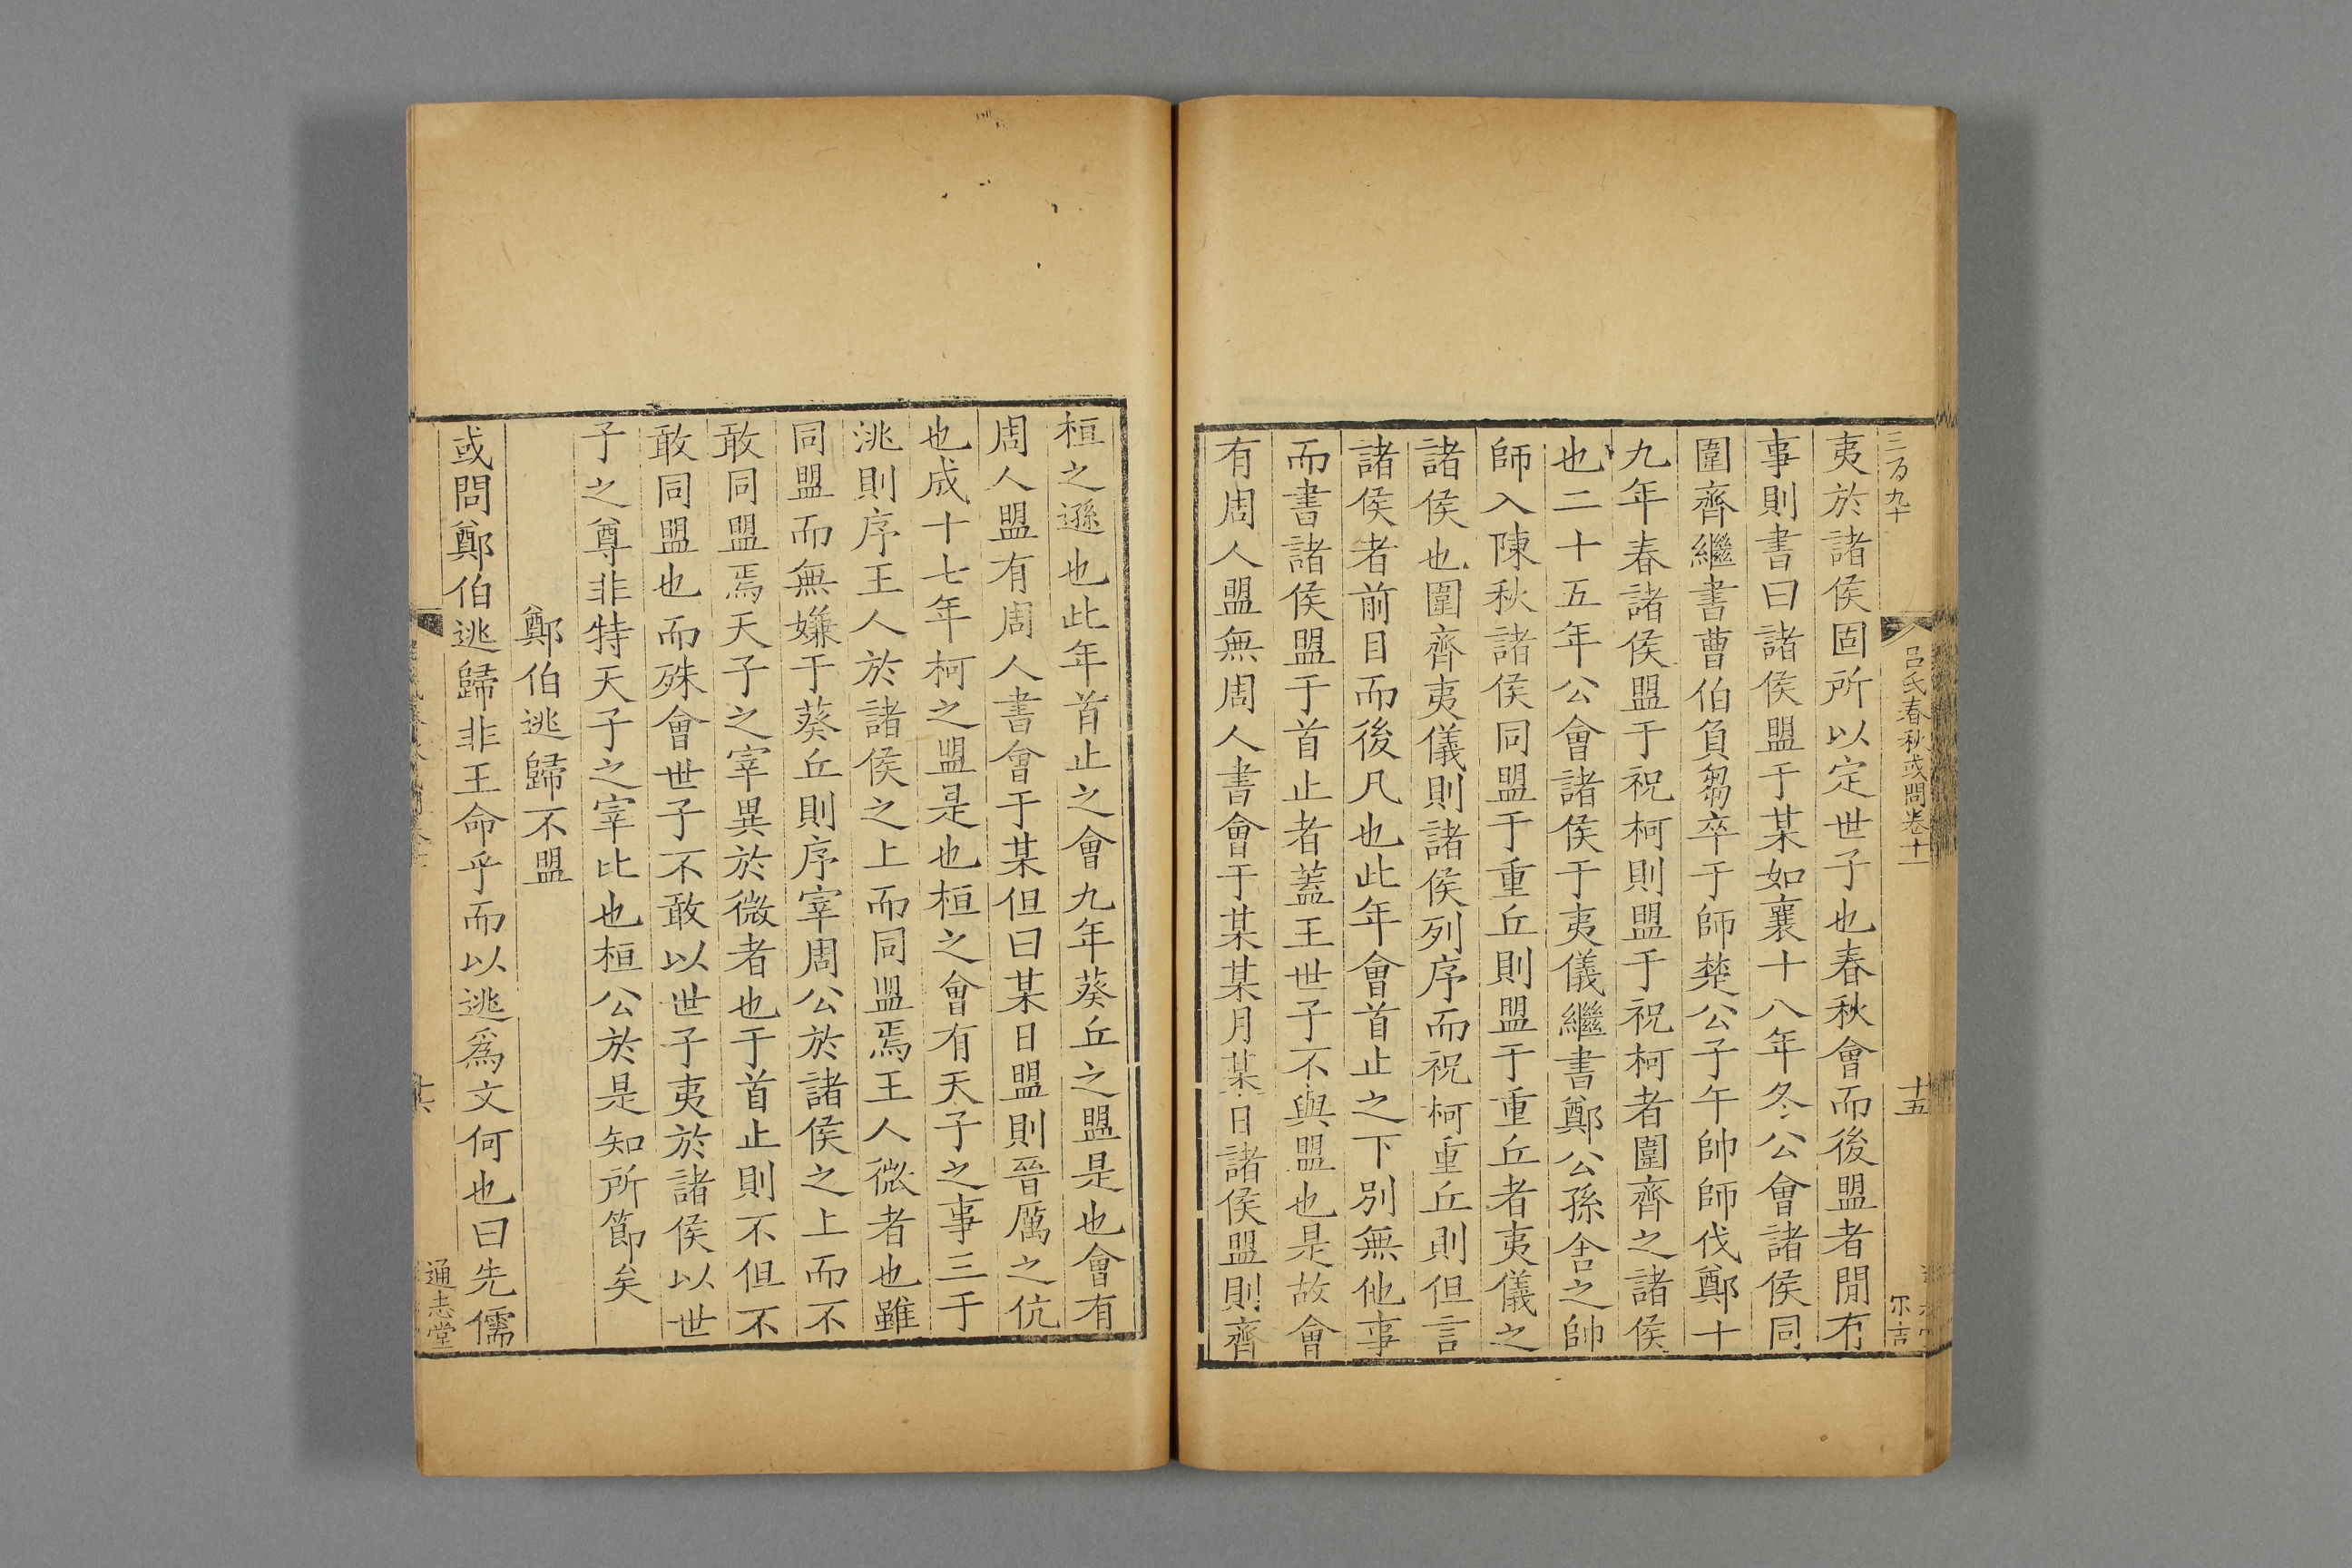 三百九十
呂氏春秋或問卷十一
十五
夷於諸侯固所以定世子也春秋會而後盟者間有
事則書曰諸侯盟于某如襄十八年冬公會諸侯同
圍齊繼書曹伯負芻卒于師楚公子午帥師伐鄭十
九年春諸侯盟于祝柯則盟于祝柯者圍齊之諸侯
也二十五年公會諸侯于夷儀繼書鄭公孫舍之帥
師入陳秋諸侯同盟于重丘則盟于重丘者夷儀之
諸侯也圍齊夷儀則諸侯列序而祝柯重丘則但言
諸侯者前目而後凡也此年會首止之下別無他事
而書諸侯盟于首止者蓋王世子不與盟也是故會
有周人盟無周人書會于某某月某日諸侯盟則齊
桓之遜也此年首止之會九年葵丘之盟是也會有
周人盟有周人書會于某但曰某日盟則晉厲之伉
也成十七年柯之盟是也桓之會有天子之事三于
洮則序王人於諸侯之上而同盟焉王人微者也雖
同盟而無嫌于葵丘則序宰周公於諸侯之上而不
敢同盟焉天子之宰異於微者也于首止則不但不
敢同盟也而殊會世子不敢以世子夷於諸侯以世
子之尊非特天子之宰比也桓公於是知所節矣
鄭伯逃歸不盟
或問鄭伯逃歸非王命乎而以逃爲文何也曰先儒
十六
通志堂